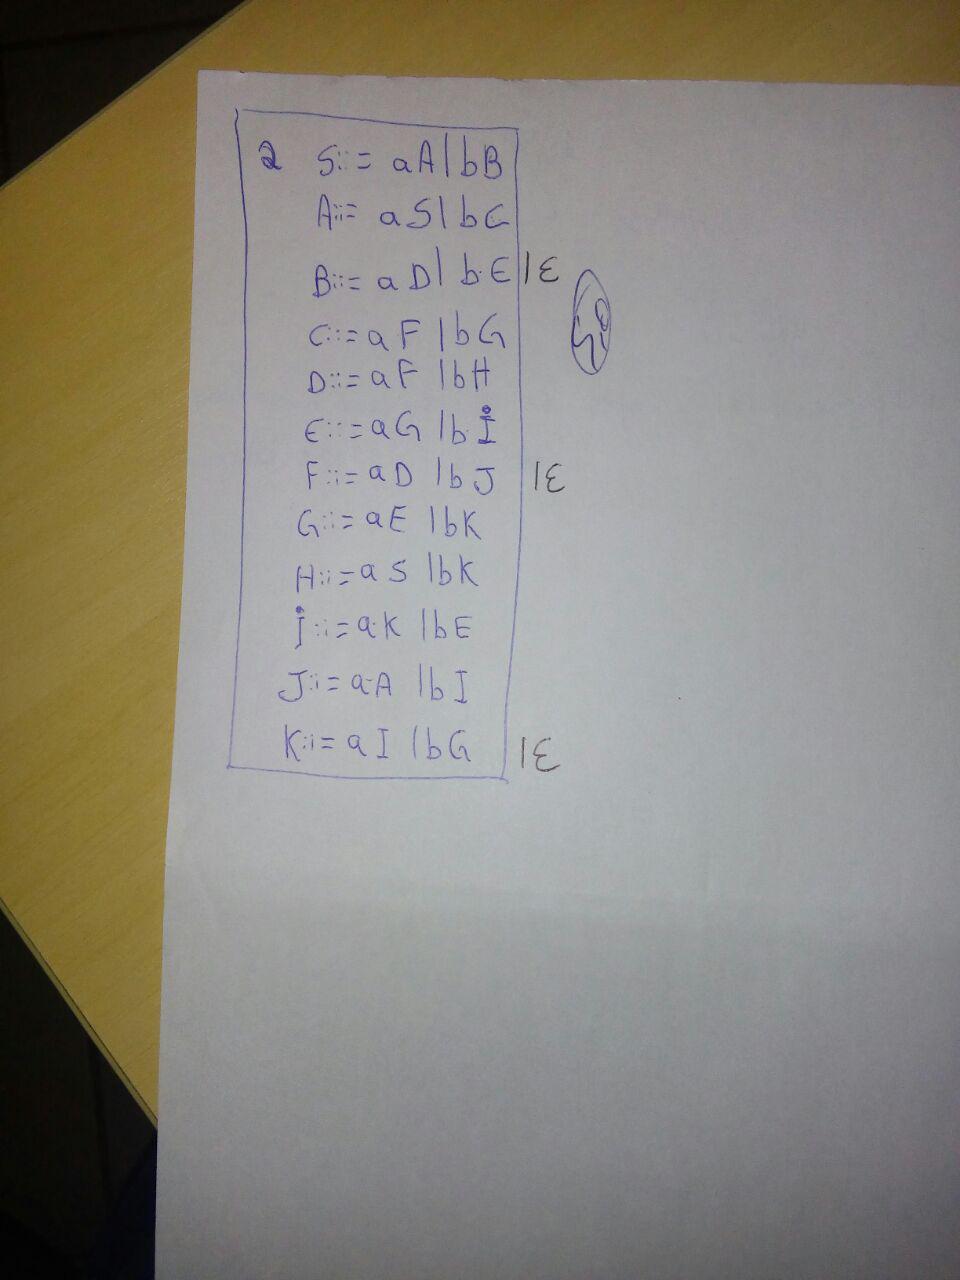 2 S::= aA|bB
A::= aS|bC
B::= aD|bE|ε
C::= aF|bG
D::= aF|bH
E::= aG|bI
F::= aD|bJ|ε
G::= aE|bK
H::= aS|bK
I::= aK|bE
J::= aA|bI
K::= aI|bG|ε